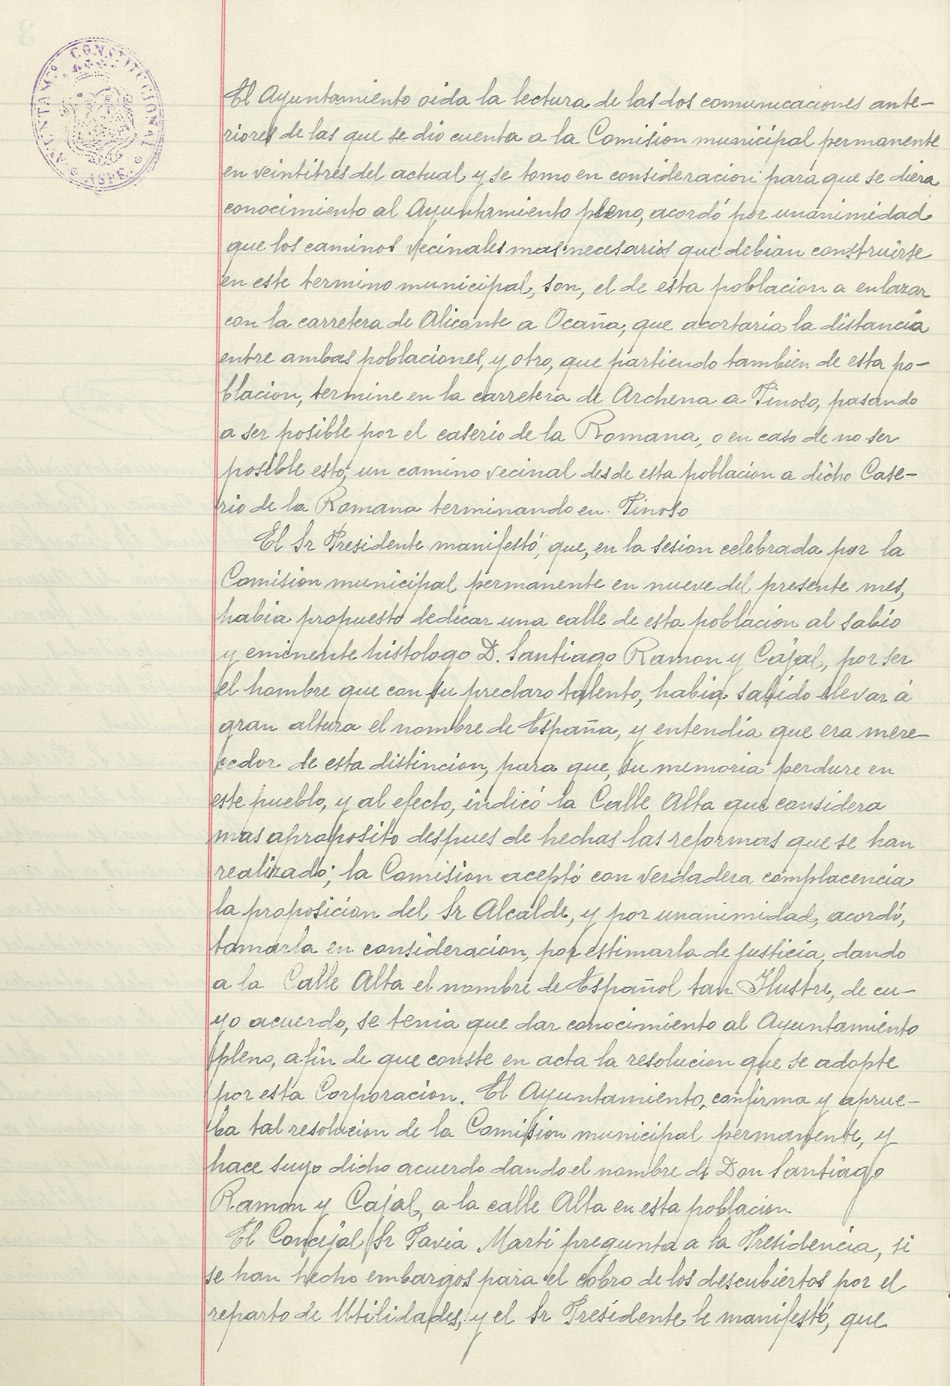 AYUNTAMTO CONSTITUCIONAL
ASPE
El Ayuntamiento oida la lectura de las dos comunicaciones ante-
riores de las que se dio cuenta a la Comision municipal permanente
en veintitres del actual y se tomo en consideracion para que se diera
conocimiento al Ayuntamiento pleno, acordó por unanimidad
que los caminos vecinales mas necesarios que debian construirse
en este termino municipal, son, el de esta poblacion a enlazar
con la carretera de Alicante a Ocaña, que acortaria la distancia
entre ambas poblaciones, y otro, que partiendo tambien de esta po-
blacion, termine en la carretera de Archena a Pinoso, pasando
a ser posible por el caserio de la Romana, o en caso de no ser
posible esto, un camino vecinal desde esta poblacion a dicho Case-
rio de la Romana terminando en Pinoso
El Sr Presidente manifestó, que, en la sesion celebrada por la
Comision municipal permanente en nueve del presente mes,
habia propuesto dedicar una calle de esta poblacion al sabio
y eminente histologo D. Santiago Ramon y Cajal, por ser
el hombre que con su preclaro talento, habia sabido elevar á
gran altura el nombre de España, y entendia que era mere-
cedor de esta distincion, para que, su memoria perdure en
este pueblo, y al efecto, indicó la Calle Alta que considera
mas aproposito despues de hechas las reformas que se han
realizado; la Comision aceptó con verdadera complacencia
la proposicion del Sr Alcalde, y por unanimidad, acordó,
tomarla en consideracion, por estimarla de justicia, dando
a la Calle Alta el nombre de Español tan Ilustre, de cu-
yo acuerdo, se tenia que dar conocimiento al Ayuntamiento
pleno, a fin de que conste en acta la resolucion que se adopte
por esta Corporacion. El Ayuntamiento, confirma y aprue-
ba tal resolucion de la Comision municipal permanente, y
hace suyo dicho acuerdo dando el nombre de Don Santiago
Ramon y Cajal, a la calle Alta en esta poblacion
El Concejal Sr Pavia Marti pregunta a la Presidencia, si
se han hecho embargos para el cobro de los descubiertos por el
reparto de Utilidades, y el Sr Presidente le manifestó, que